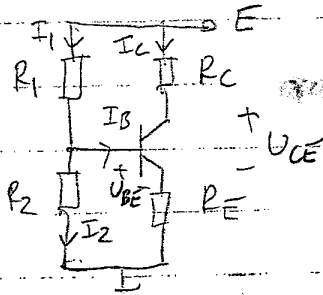 E
I1 IC
R1 RC
IB
+
UCE
-
+
UBE
R2 RE
I2